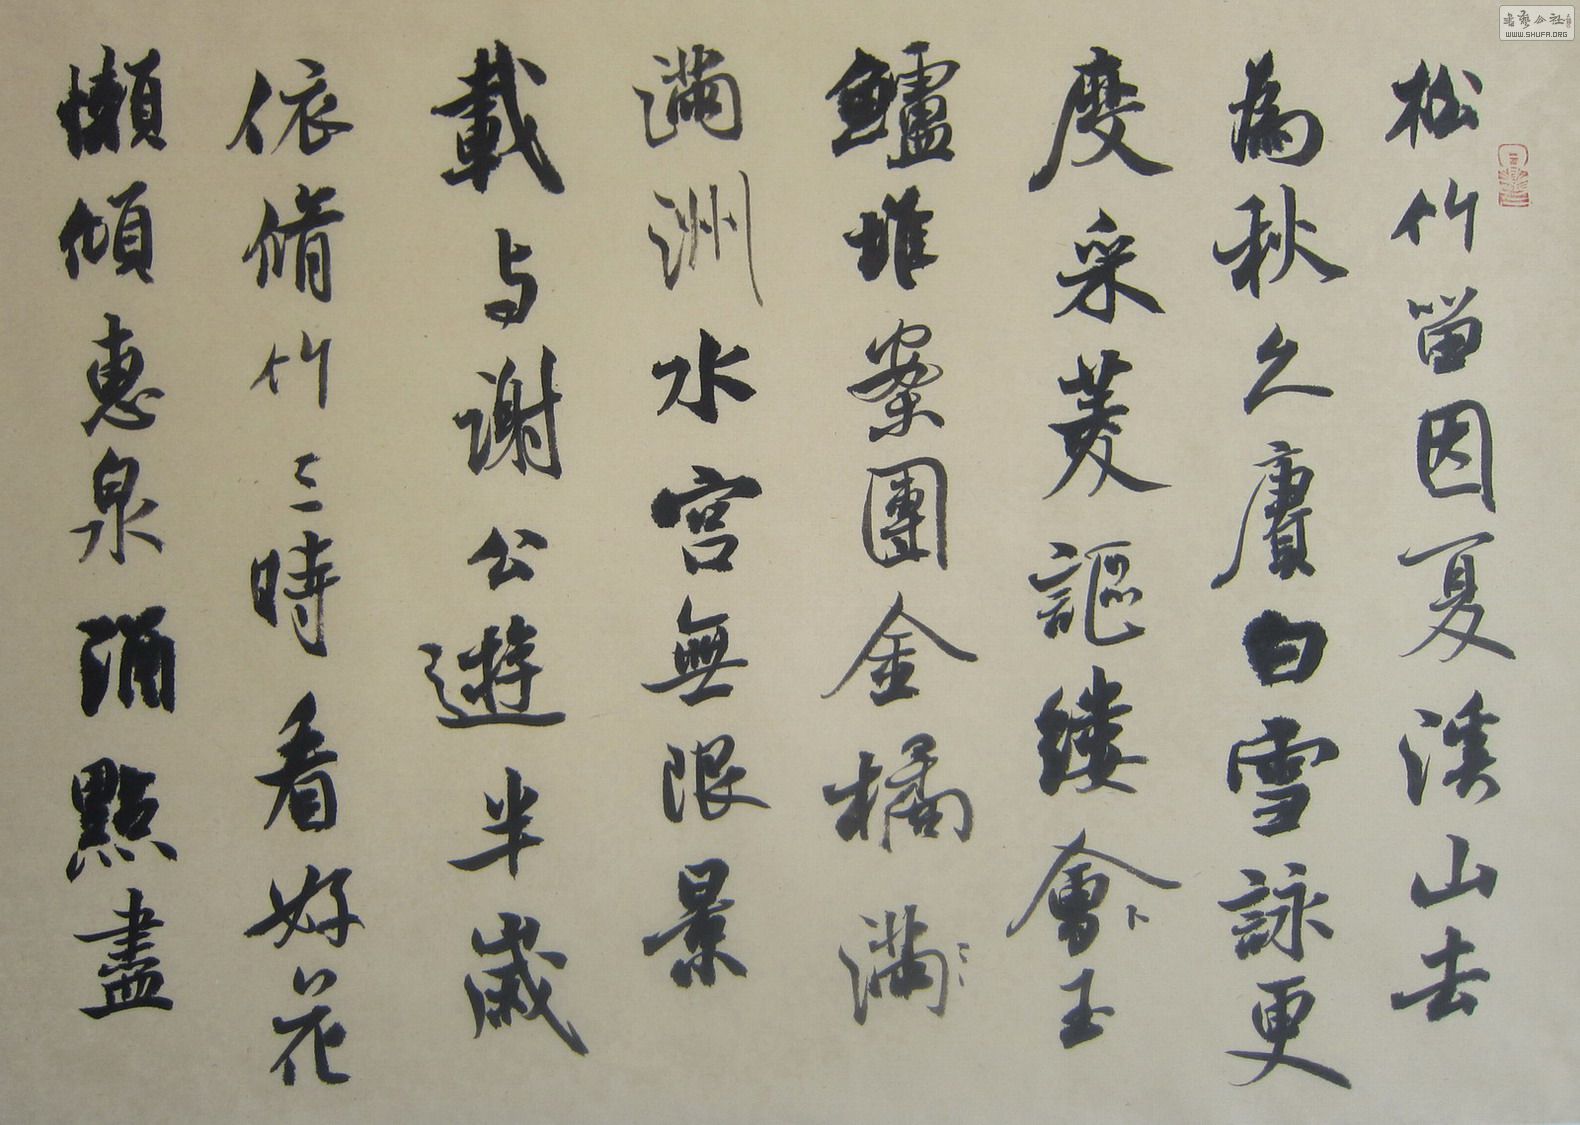 松竹留因夏溪山去
為秋久賡白雪詠更
度采菱謳縷會卜玉
鱸堆案團金橘滿ミ
滿洲水宮無限景
載与謝公遊半歲
依脩竹三時看好花
懶傾惠泉酒點盡
書藝公社
WWW.SHUFA.ORG